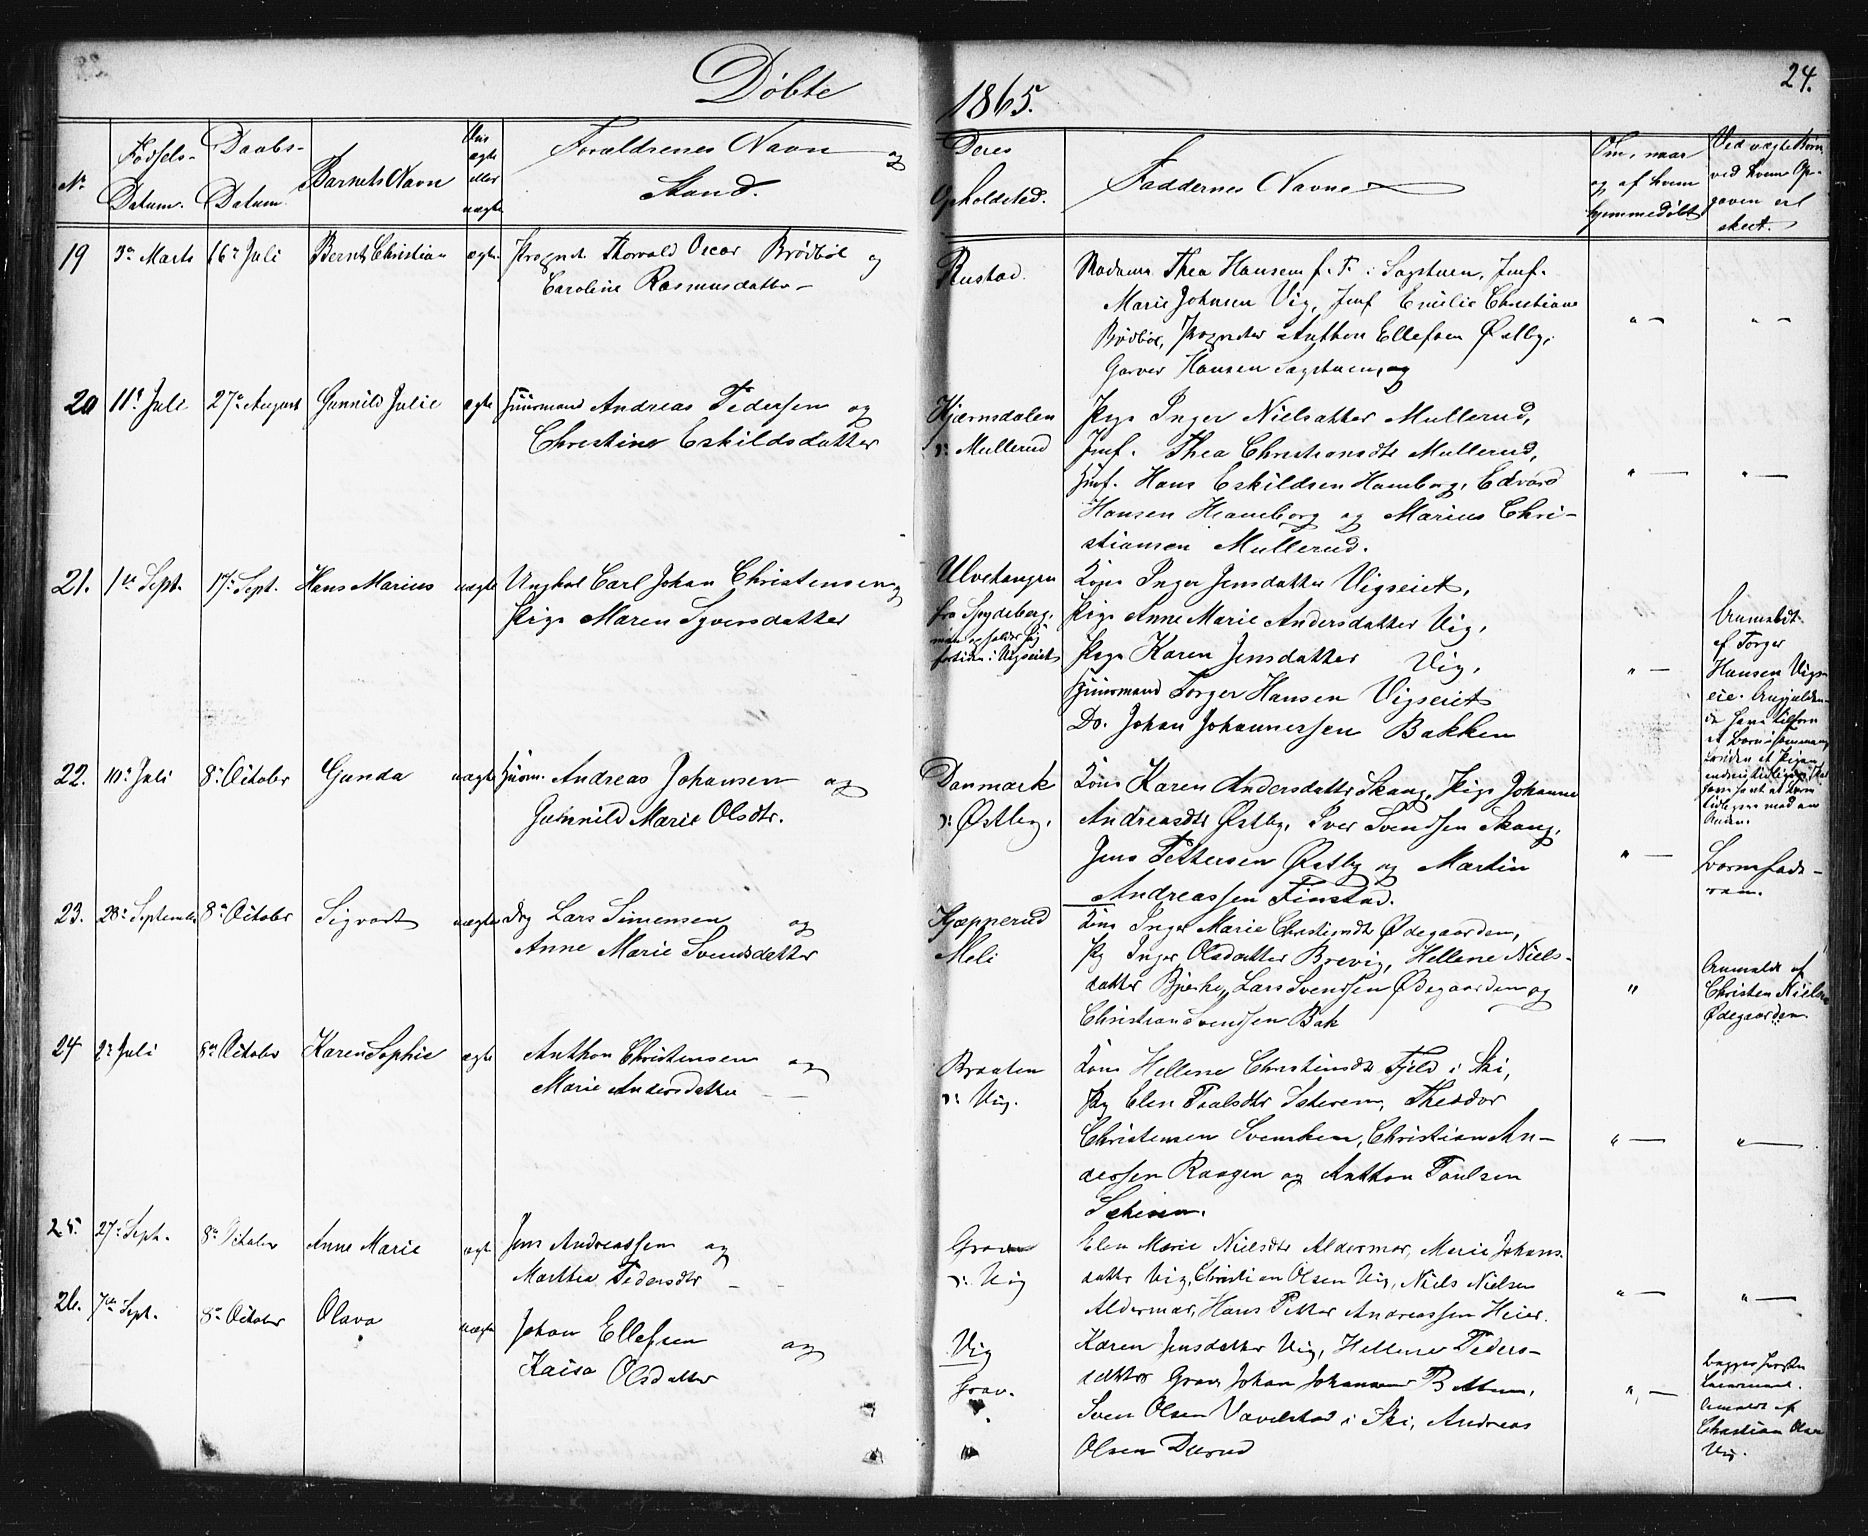 Døbte
1865.
24.
No
Fødsels-
Datum.
Daabs-
Datum.
Barnets Navn
ægte
eller
uægte
Forældrenes Navn og
Stand.
Deres
Opholdsted.
Faddernes Navne
Om, naar
og af hvem
hjemmedøbt
Ved uægte Børn
ved hvem Op-
gaven er
skeet.
19
3de Marts
16de Juli
Bernt Christian
ægte
Thorvald Oscar Brødbøl og
Caroline Rasmusdatter
Rustad.
Madame Thea Hansen f. T. i Sagstuen, Jmf.
Marie Johnsen Vig, Jmf Emilie Christiane
Brødbøl, Anthon Ellefsen Østby,
Garver Hansen Sagstuen
" —
" —
20
11te Juli
27de August
Gunnild Julie
ægte
Huusmand Andreas Pedersen og
Christine Eskildsdatter
Kjærnsdalen
Mullerud
Pige Inger Nielsdatter Mullerud,
Jmf. Thea Christiansdtr Mullerud,
Hans Eskildsen Hamborg, Edvard
Hansen Hamborg og Marius Chri-
stiansen Mullerud.
" —
" —
21.
1te Sept.
17de Sept.
Hans Marius
uægte
Ungkal Carl Johan Christensen og
Pige Maren Syversdatter
Ulvetangen
fra Spydeberg,
men opholder sig
fortiden i Vigseiet
Kone Inger Jensdatter Vigseiet,
Pige Anne Marie Andersdatter Vig,
Pige Karen Jensdatter Vig,
Huusmand Torger Hansen Vigseiet
Do. Johan Johannessen Bakken
" —
Anmeldt
af Torger
Hansen Vigs-
eie.
22.
10de Juli
8de October
Gunda
uægte
Huusm. Andreas Johansen og
Gunnild Marie Olsdtr.
Danmark
Østby.
Kone Karen Andersdatter Skaug, Pige Johanne
Andreasdtr Østby, Iver Svendsen Skaug,
Jens Pettersen Østby og Martin
Andreassen Finstad.
" —
Barnefade-
ren.
23.
28de September
8de October
Sigvart
uægte
Lars Simensen og
Anne Marie Svendsdatter
Kjæpperud
Meli
Kone Inger Marie Christiansdtr Ødegaarden,
Pg Inger Olsdatter Brevig, Hellene Niels-
datter Bjerke, Lars Svendsen Ødegaarden og
Christian Svendsen Bak
"
Anmeldt af
Christen Nielsen
Ødegaarden
24
2de Juli
8de October
Karen Sophie
ægte
Anthon Christensen og
Marie Andersdatter
Braaten
Vig.
Kone Hellene Christiansdtr Fjeld i Ski,
Pig Elen Paulsdtr Theodor
Christensen Svenken, Christian An-
dersen Raagen og Anthon Paulsen
" —
" —
25.
27de Sept.
8de October
Anne Marie
ægte
Jens Andreassen og
Marthe Pedersdtr
Grav
Vig
Elen Marie Nielsdtr Aldermar, Marie Johans-
datter Vig, Christian Olsen Vig, Niels Nielsen
Aldermar, Hans Petter Andreassen Heier.
" —
" —
26.
7de Sept.
8de October
Olava
uægte
Johan Ellefsen og
Kaisa Olsdatter
Vig
Grav.
Karen Jensdatter Vig, Hellene Peders-
datter Grav, Johan Johannes
Sven Olsen Vevelstad i Ski, Andreas
Olsen Durud
" —
Anmeldt af
Christian Olsen
Vig.